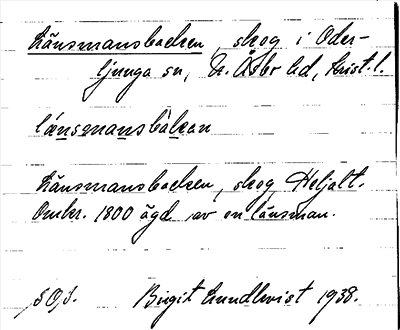 Länsmansbacken, skog i Oder-
ljunga sn, N. Åsbo hd, Krist. l.
länsmansbakan
Länsmansbacken, skog Heljalt.
Omkr. 1800 ägd av en länsman.
SOJ. Birgit Lundkvist 1938.